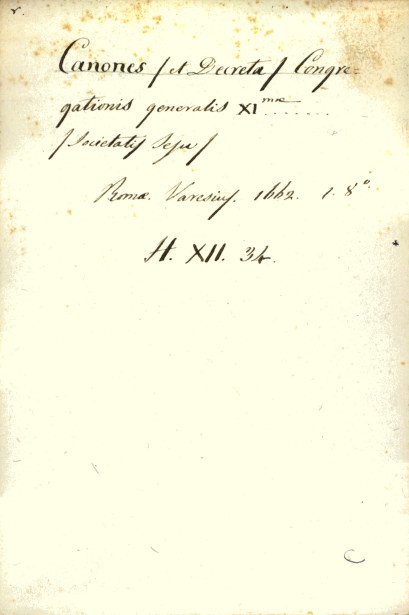 r.
Canones / et Decreta / Congre=
gationis generalis XI mae .......
/ Societatis Jesu /
Romae. Varesius. 1662. 1. 8°.
H. XII. 34.